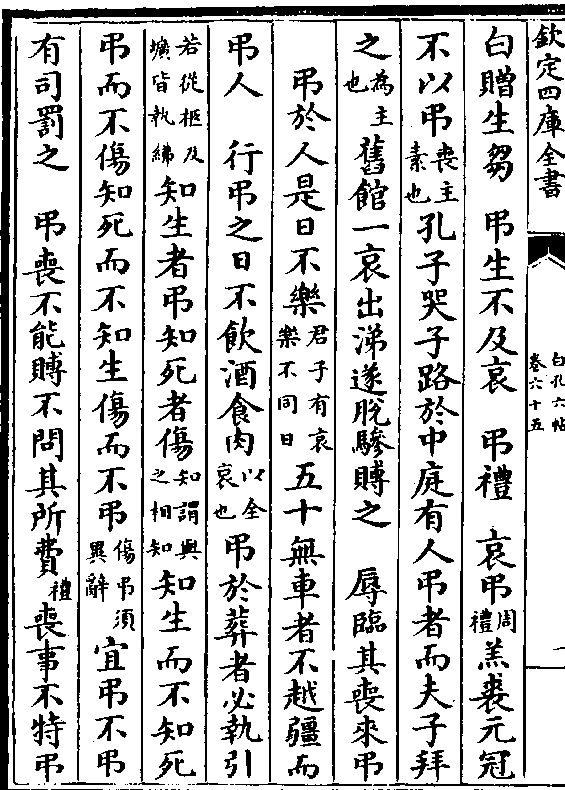 欽定四庫全書
白孔六帖
卷六十五
一
白贈生芻　弔生不及哀　弔禮　哀弔周禮羔裘元冠
不以弔喪主素也孔子哭子路於中庭有人弔者而夫子拜
之為主也舊館一哀出涕遂脫驂賻之　辱臨其喪來弔
弔於人是日不樂君子有哀樂不同日五十無車者不越疆而
弔人　行弔之日不飲酒食肉以全哀也弔於葬者必執引
若從柩及壙皆執紼知生者弔知死者傷知謂與之相知知生而不知死
弔而不傷知死而不知生傷而不弔傷弔須異辭宜弔不弔
有司罰之　弔喪不能賻不問其所費禮喪事不特弔